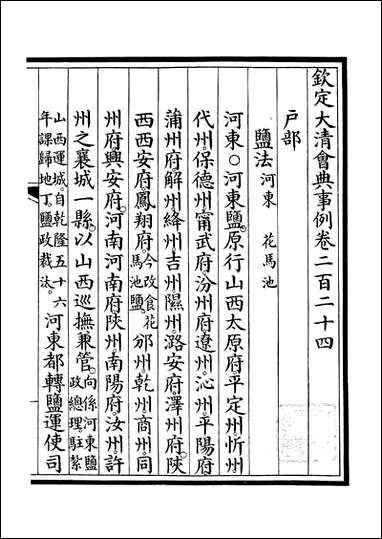 欽定大清會典事例卷二百二十四
戶部
鹽法河東 花馬池
河東○河東鹽原行山西太原府平定州忻州
代州保德州甯武府汾州府遼州沁州平陽府
蒲州府解州絳州吉州隰州潞安府澤州府陝
西西安府鳳翔府今改食花馬池鹽邠州乾州商州同
州府興安府河南河南府陝州南陽府汝州許
州之襄城一縣以山西巡撫兼管向係河東鹽政總理駐紮
山西運城自乾隆五十六年課歸地丁鹽政裁汰河東都轉鹽運使司